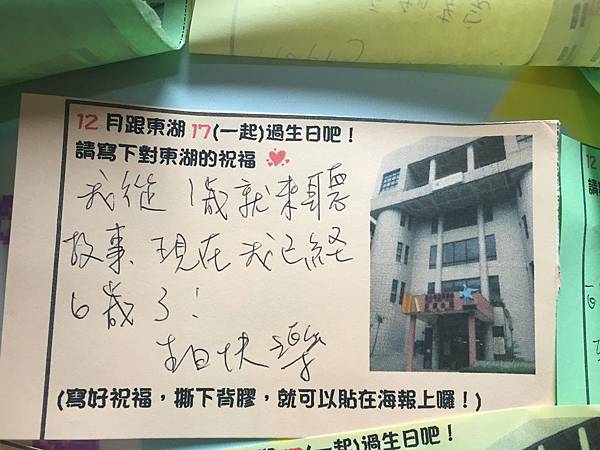 12月跟東湖17(一起)過生日吧！
請寫下對東湖的祝福
我從1歲就來聽
故事、現在我已經
6歲了！
生日快樂
(寫好祝福，撕下背膠，就可以貼在海報上囉！)
12
請
(一起)過生日吧！